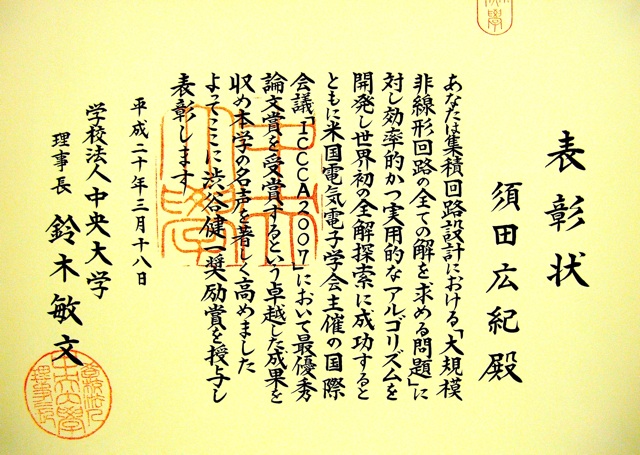 表彰状
須田広紀殿
あなたは集積回路設計における「大規模
非線形回路の全ての解を求める問題」に
対し効率的かつ実用的なアルゴリズムを
開発し世界初の全解探索に成功すると
ともに米国電気電子学会主催の国際
会議「ICCCA2007」において最優秀
論文賞を受賞するという卓越した成果を
収め本学の名声を著しく高めました
よってここに渋谷健一奨励賞を授与し
表彰します
平成二十年三月十八日
学校法人中央大学
理事長 鈴木敏文